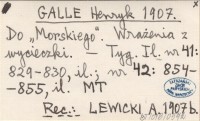 GALLE Henryk 1907.
Do „Morskiego". Wrażenia z
wycieczki. – Tyg. Il. nr 41:
829-830, il.; nr 42: 854-
-855, il. MT
Rec.: LEWICKI A. 1907 b.